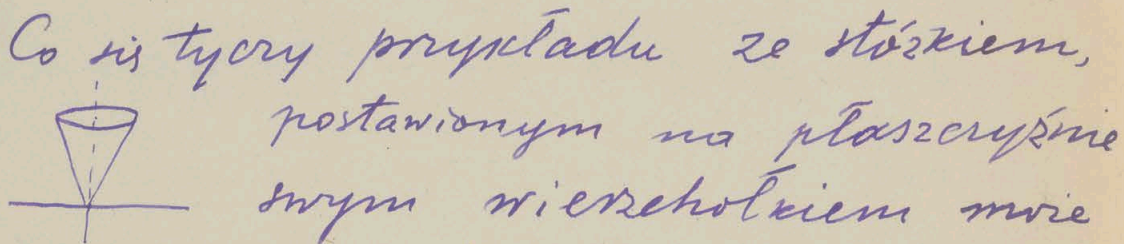 Co się tyczy przykładu ze stóżkiem,
postawionym na płaszczyźnie
swym wierzchołkiem